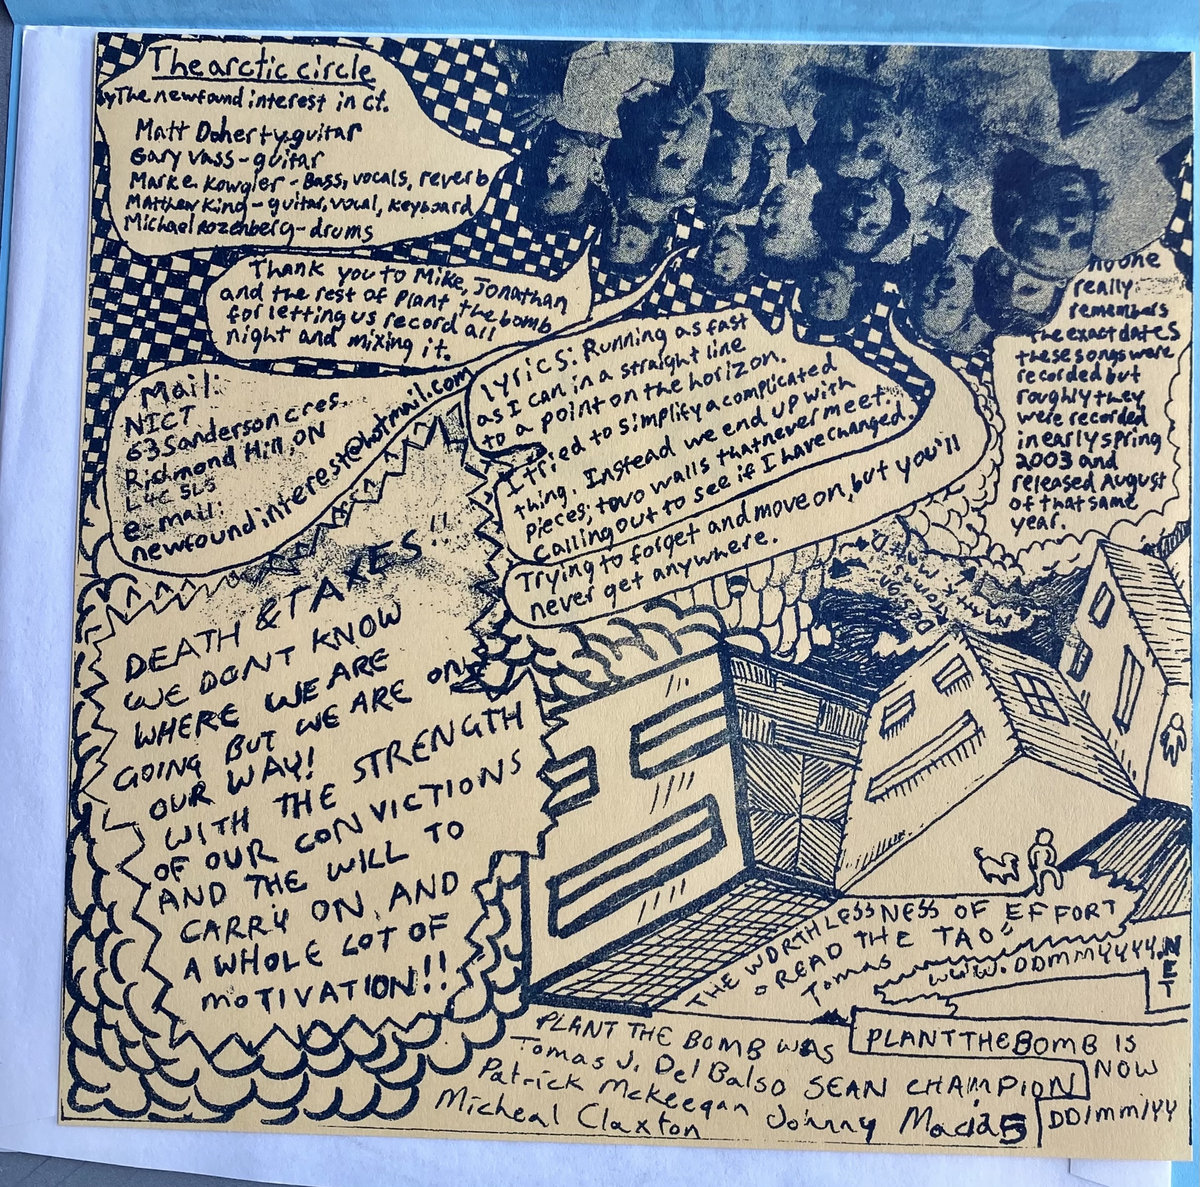 The arctic circle
by The newfound interest in ct.
Matt Doherty-guitar
Gary Vass-guitar
Mark e. Kowgier - Bass, vocals, reverb
Matthew King - guitar, vocal, keyboard
Michael rozenberg-drums
Thank you to Mike, Jonathan
and the rest of Plant the bomb
for letting us record all
night and mixing it.
Mail:
NICT
63 Sanderson cres.
Richmond Hill, ON
L4C 5L5
e-mail:
newfoundinterest@hotmail.com
lyrics: Running as fast
as I can in a straight line
to a point on the horizon.
I tried to simplify a complicated
thing. Instead we end up with
pieces; two walls that never meet.
Calling out to see if I have changed.
Trying to forget and move on, but you'll
never get anywhere.
no one
really
remembers
the exact dates
these songs were
recorded but
roughly they
were recorded
in early spring
2003 and
released August
of that same
year.
DEATH & TAXES!!
WE DONT KNOW
WHERE WE ARE
GOING BUT WE ARE ON
OUR WAY!
WITH THE STRENGTH
OF OUR CONVICTIONS
AND THE WILL TO
CARRY ON, AND
A WHOLE LOT OF
MOTIVATION!!
THE WORTHLESSNESS OF EFFORT
READ THE TAO"
Tomas
WWW.DDMMYYYY.NET
PLANT THE BOMB WAS
Tomas J. Del Balso SEAN CHAMPION
Patrick McKeegan Johnny Macias
Micheal Claxton
PLANTTHEBOMB IS
NOW
DD/mm/yy